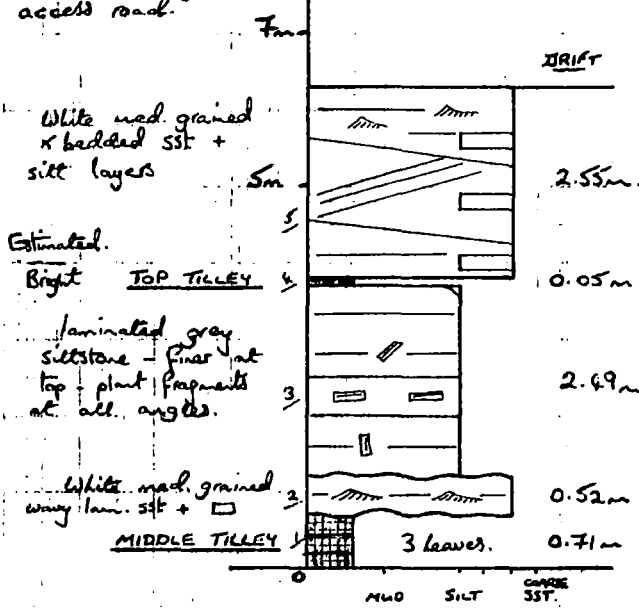 access road.
7m
DRIFT
White med. grained
x bedded sst +
silt layers
5m
2.55m
5
Estimated.
Bright TOP TILLEY
4
0.05m
laminated grey
siltstone - finer at
top - plant fragments
at all angles.
3
2.49m
White med. grained
wavy lam. sst +
2
0.52m
MIDDLE TILLEY
1
3 leaves.
0.71m
0
MUD SILT COARSE
SST.